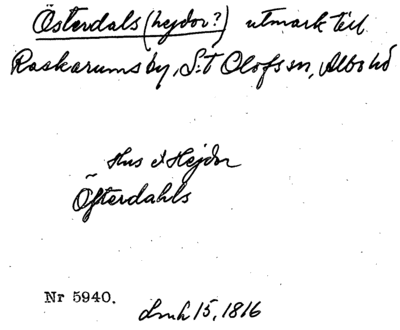 Österdals (hejdor?) utmark till
Raskarums by, S:t Olofs sn, Albo hd
Hus å Hejdor
Öfterdahls
Nr 5940.
Lmh 15, 1816